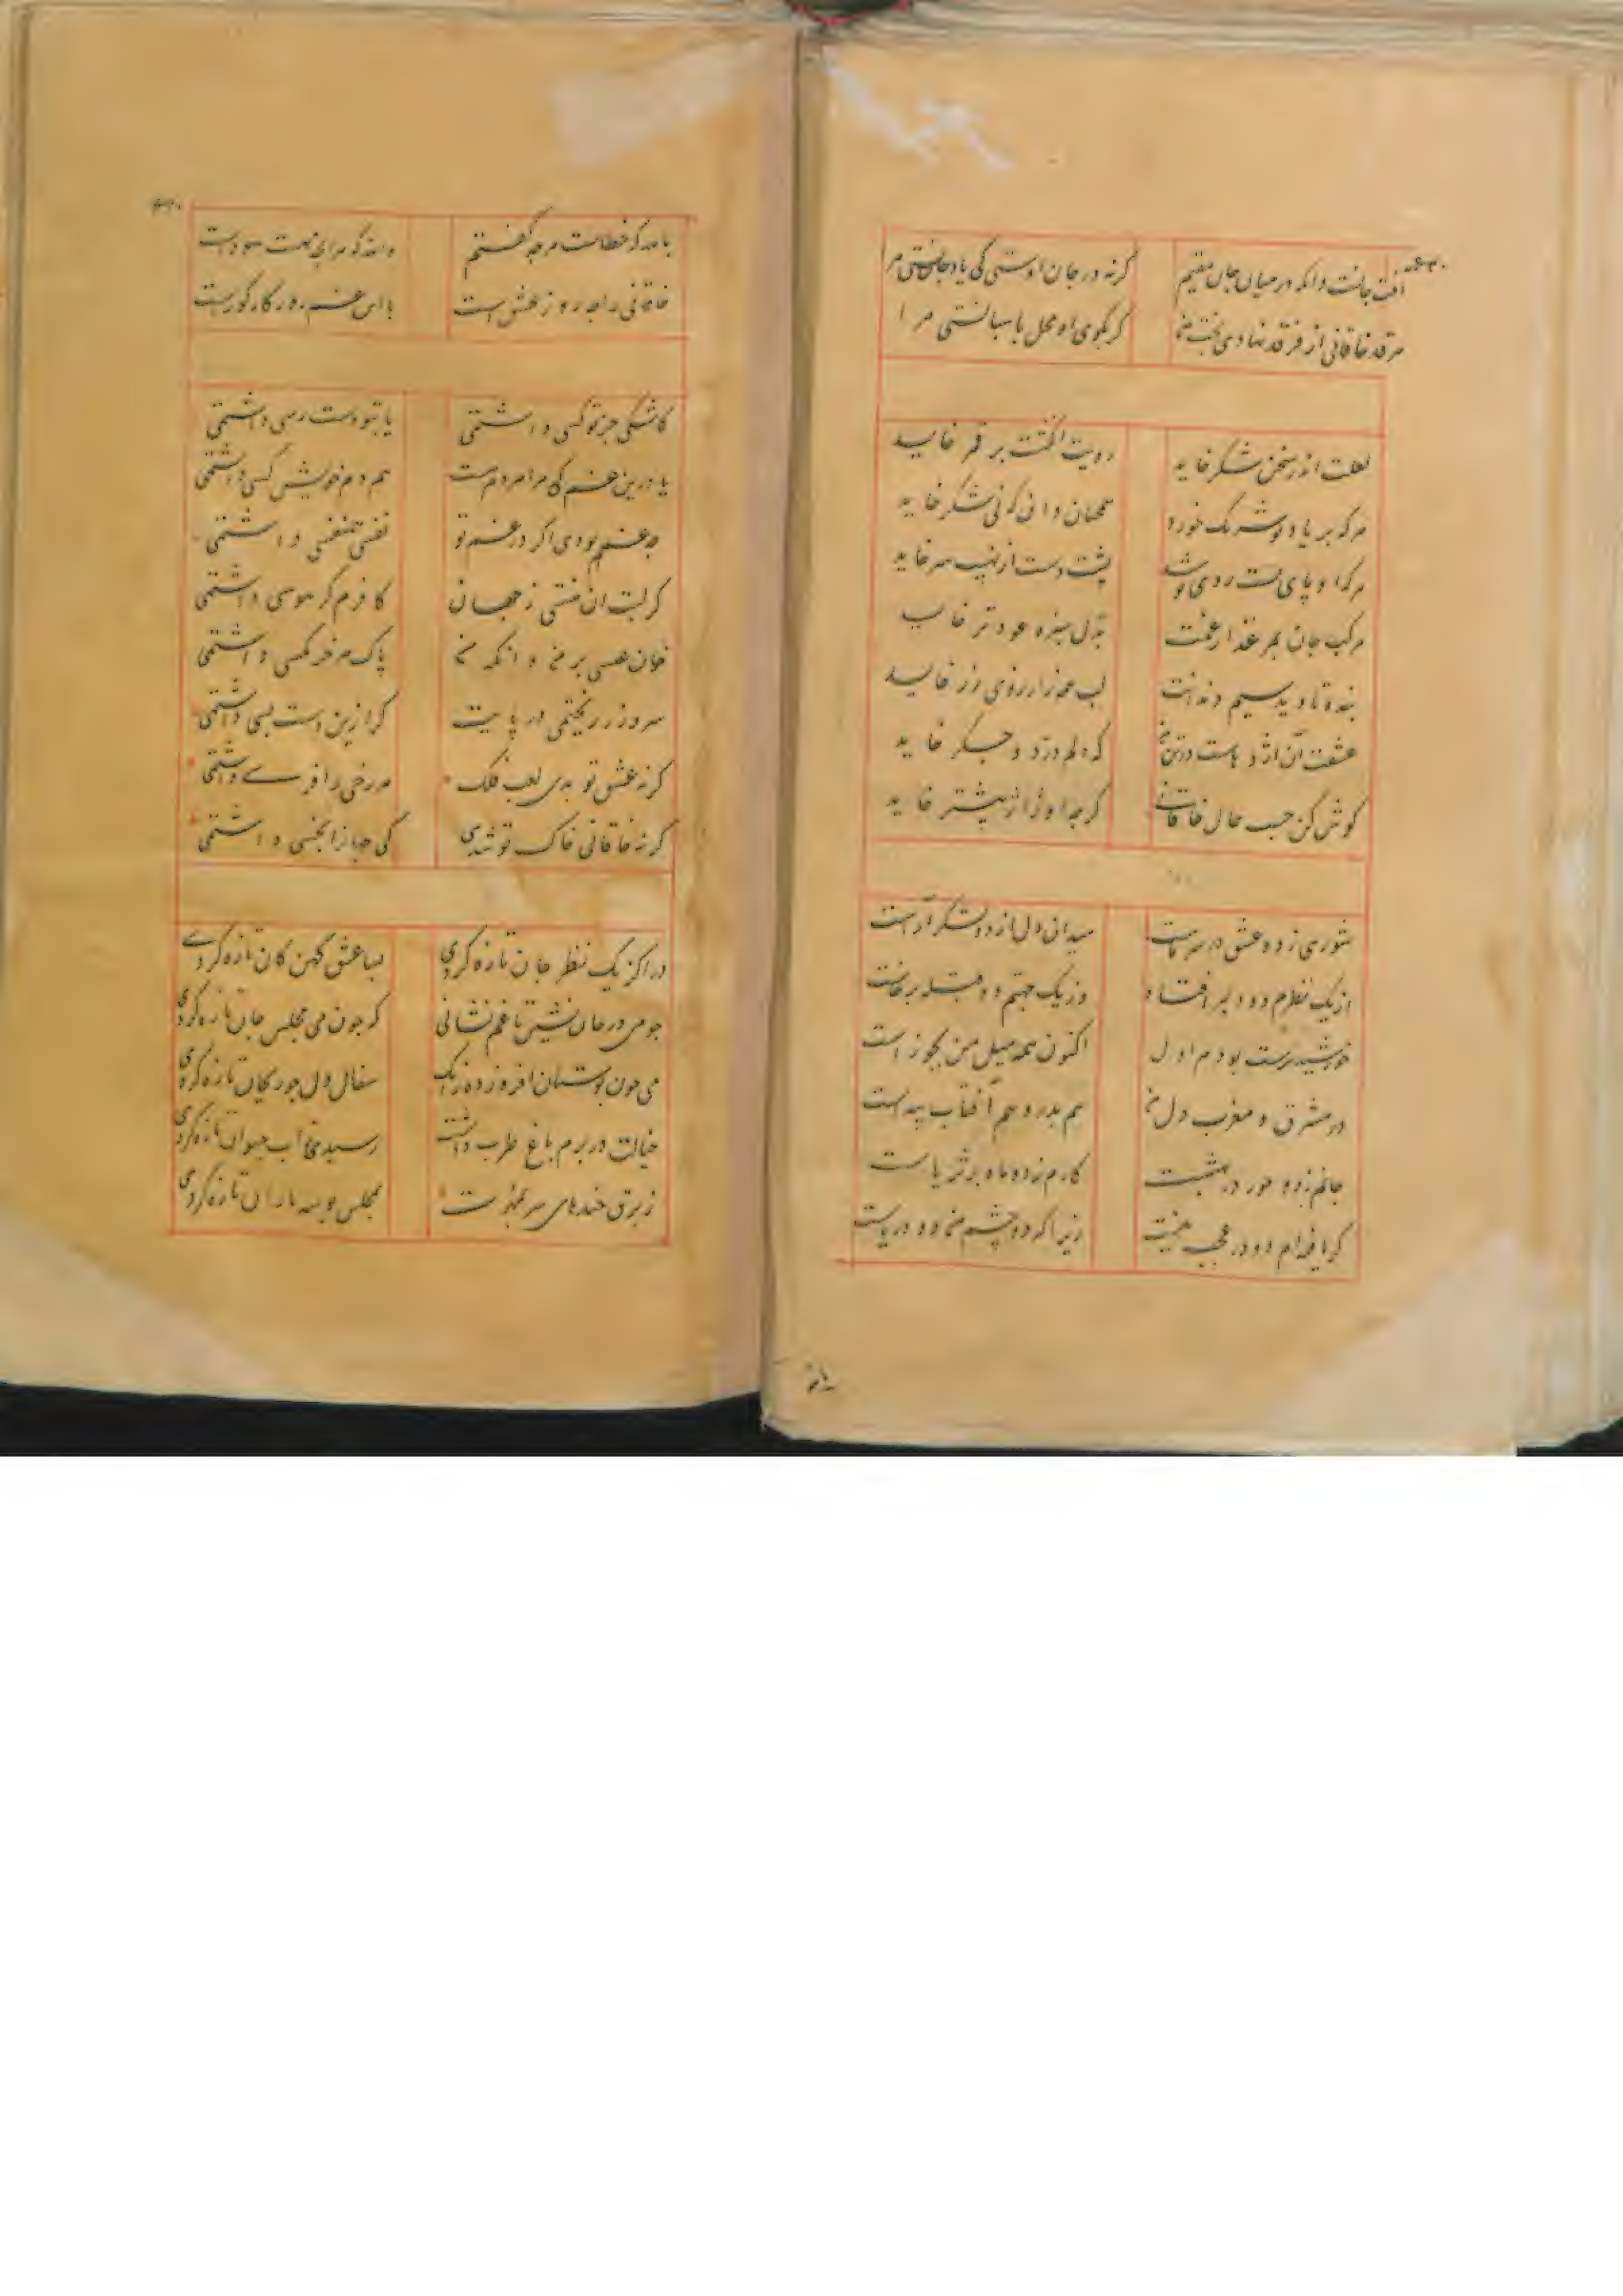 آفت جانست وانکه در میان جان مقیم
کرنه در جان اوستی کی یاد جانستی مرا
مرقد خاقانی از فرقد نهادی بخت من
کر بکوی او محل پاسبانستی مرا
لعلت اندر سخن شکر خاید
رویت انکشت بر قمر خاید
هرکه بر یاد تو شرنک خورد
همچنان دانی کنی شکر خاید
هرکه او پای بست روی تو شد
پشت دست از نهیب سر خاید
مرکب جان بمرغذار غمت
بدل سبزه عود تر خاید
بنده تا دید سیم دندانت
لب همه زار روی زر خاید
عشقت آن اژدهاست در تن من
که دلم درد و جکر خاید
کوش کن حسب حال خاقانی
کرچه او ژاژ بیشتر خاید
شوری ز دو عشق در سر ماست
میدان دل از دو لشکر آراست
از یک نظرم دو دلبر افتاد
وز یک جهتم دو قبله برخاست
خورشید پرست بودم اول
اکنون همه میل من بجوزاست
در مشرق و مغرب دل من
هم بدر و هم آفتاب پیداست
جانم ز دو حور در بهشتست
کارم ز دو ماه بر ثریاست
کر یافته‌ام دو در عجب نیست
زیرا که دو چشم من دو دریاست
با صد که خطاست هرچه کفتم
خاقانی را چه روز عشق است
با این غم روزکار کورست
کاشکی جز تو کسی داشتمی
یا بتو دست رسی داشتمی
یا درین غم که مرا هر دمست
هم دم خویش کسی داشتمی
چه غمم بودی اکر در غم تو
نفسی همنفسی داشتمی
کر لبت آن منستی ز جهان
کافرم کر هوسی داشتمی
خوان عیسی بر من وانکه من
باک هر خرمکسی داشتمی
سر و زر ریختمی در پایت
کر ازین دست بسی داشتمی
کرنه عشق تو بدی لعب فلک
هر رخی را فرسی داشتمی
کرنه خاقانی خاک تو شدی
کی جهانرا بخسی داشتمی
در اکز یک نظر جان تازه کردی
بسا عشق کهن کان تازه کردی
چو می در جان نشین تا غم نشانی
که چون می مجلس جان تازه کردی
می چون بوستان افروز ده زانک
سفال دل چو ریحان تازه کردی
خیالت در برم باغ طرب داشت
رسیدی آب حیوان تازه کردی
ز برق خنده‌های سر بمهرت
بمجلس بوسه باران تازه کردی